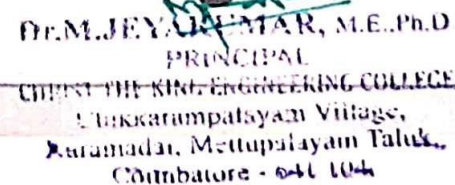 Dr.M.JEYAKUMAR, M.E.,Ph.D
PRINCIPAL
CHRIST THE KING ENGINEERING COLLEGE
Chikkarampalayam Village,
Karamadai, Mettupalayam Taluk,
Coimbatore - 641 104